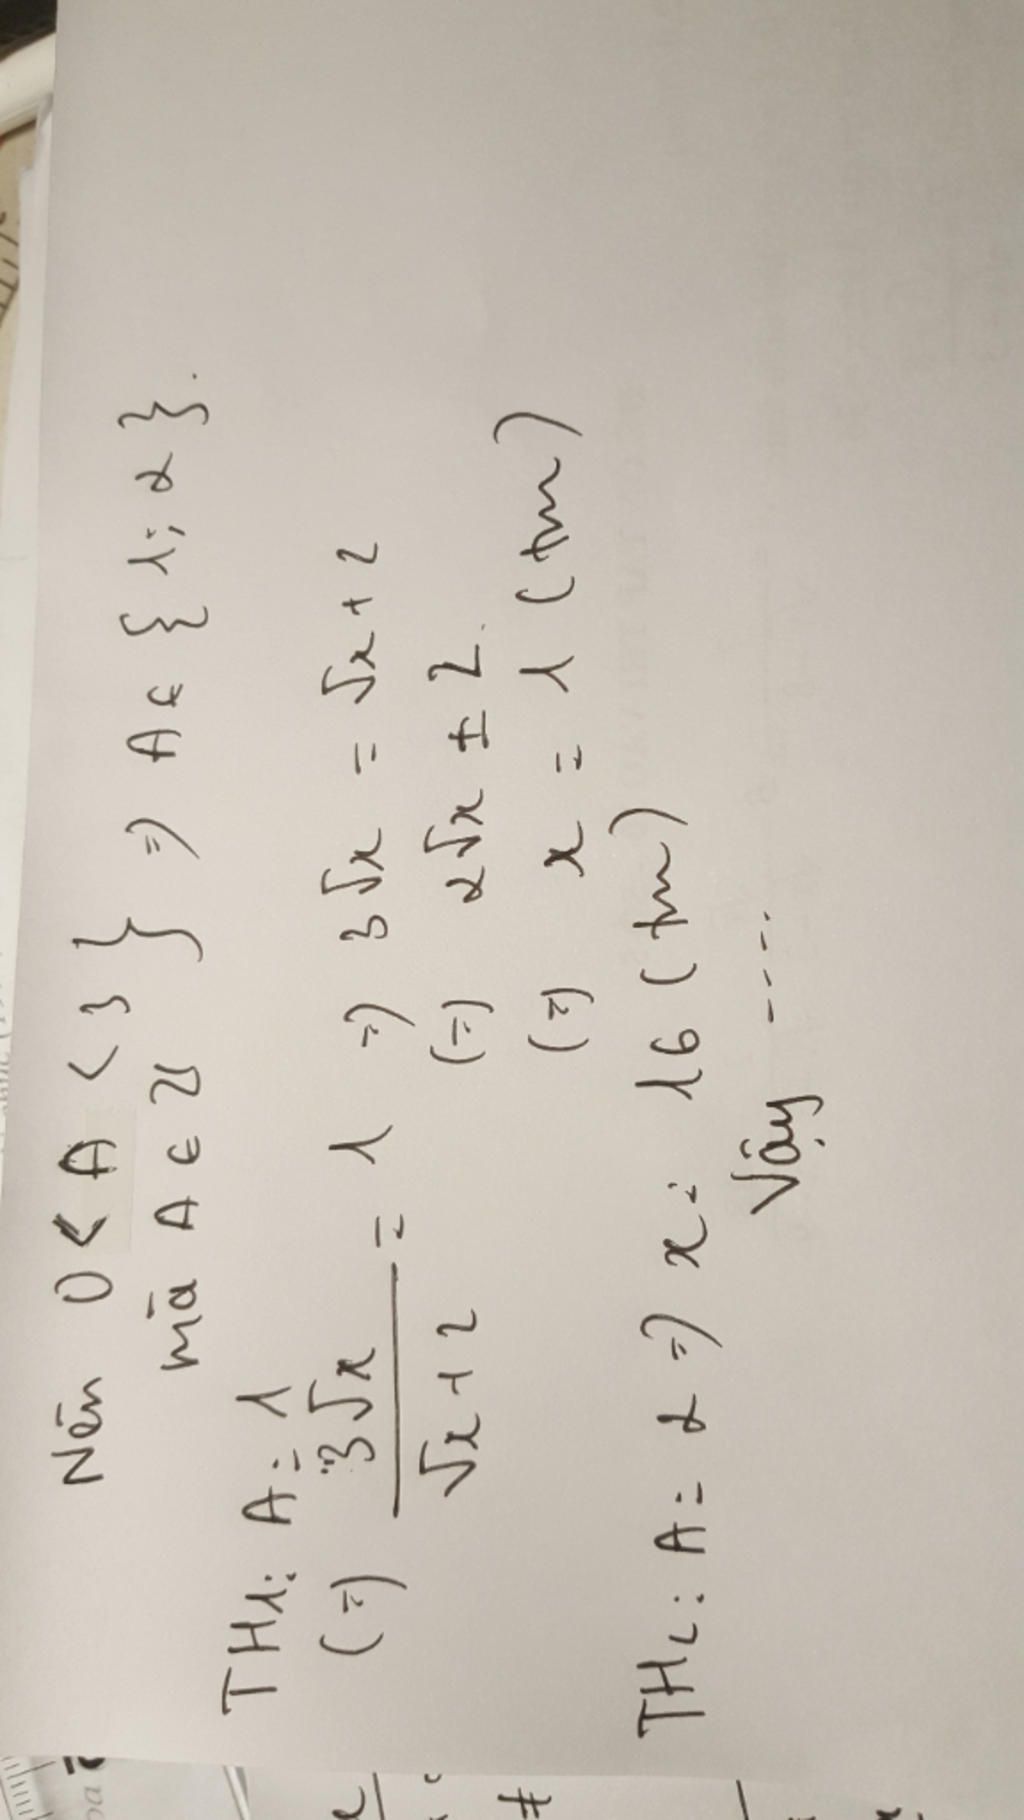 Nên 0 < A < 3 } => A ∈ { 1; 2 }.
mà A ∈ Z
TH1: A = 1
(=) 3√x / √x + 2 = 1 => 3√x = √x + 2
(=) 2√x = 2.
(=) x = 1 (tm)
TH2: A = 2 => x = 16 (tm)
Vậy ----.